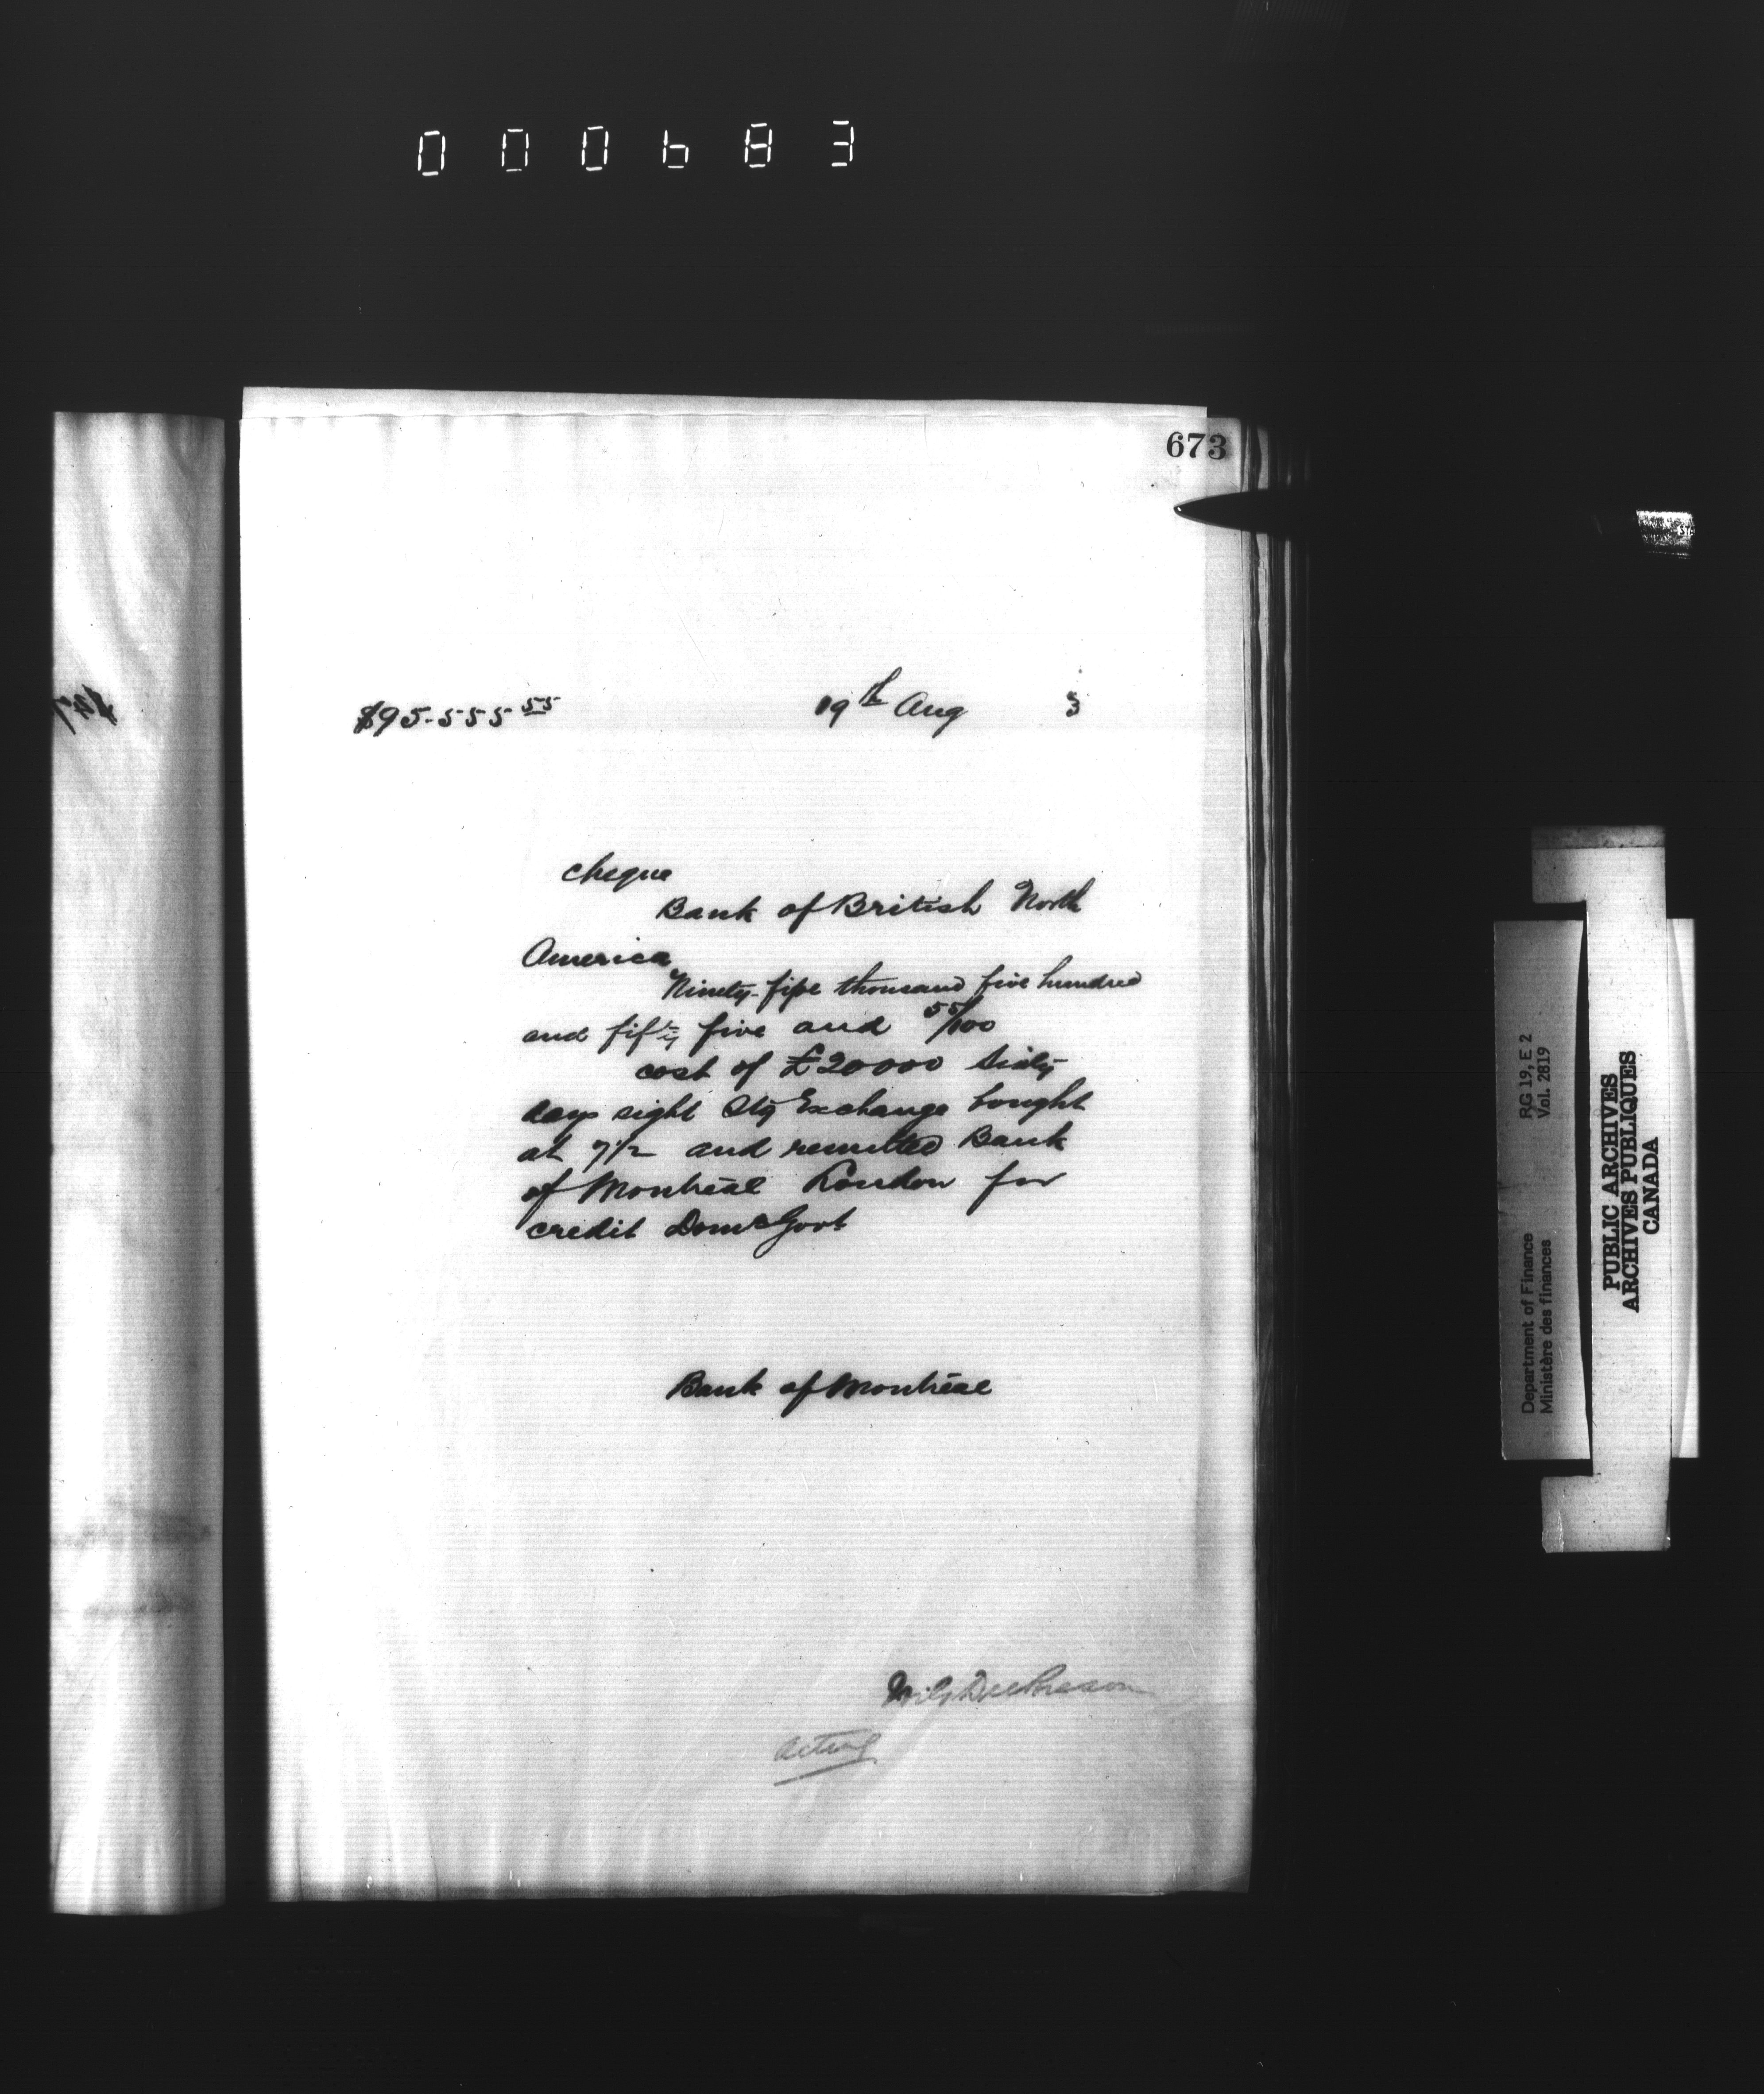 000683
673
$95.555 55
19th Aug 3
cheque
Bank of British North
America
Ninety-five thousand five hundred
and fifty five and 55/100
cost of £20000 Sixty
days sight Stg Exchange bought
at 7 1/2 and remitted Bank
of Montreal London for
credit Domn Govt
Bank of Montreal
Acting
Department of Finance RG 19, E 2
Ministère des finances Vol. 2819
PUBLIC ARCHIVES
ARCHIVES PUBLIQUES
CANADA